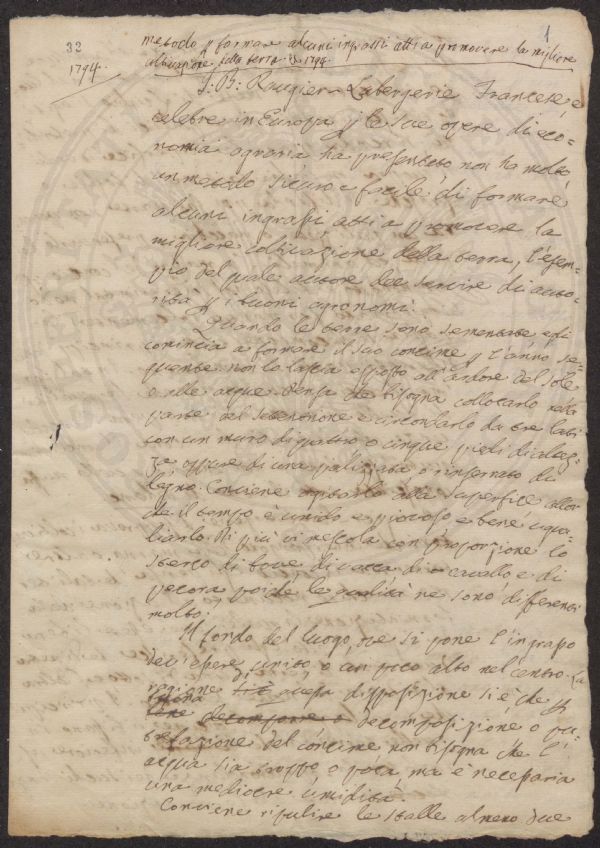 1
32
1794.
metodo p formare alcuni ingrassi atti a promovere la migliore
coltivazione della terra 1794.
J: B: Rougier-Labergerie Francese è
celebre in Europa p le sue opere di eco-
nomia agraria ha presentato non ha molto
un metodo sicuro e facile di formare
alcuni ingrassi atti a promovere la
migliore coltivazione della terra, l'esem-
pio del quale autore dee servire di auto-
rità p i buoni agronomi.
Quando le terre sono sementate egli
comincia a formare il suo concime p l'anno se-
guente non lo lascia esposto all'ardore del sole
o alle acque bisogna collocarlo nella
parte del settentrione e circondarlo da tre lati
con un muro di quattro o cinque piedi di altez-
za oppure di una palizzata o rinserrato di
legno. Conviene alla superficie allor
che il tempo è umido e piovoso e bene uguag-
liarlo. Di più vi mescola con proporzione lo
sterco di bove di vacca di cavallo e di
pecora poichè le qualità ne sono differenti
molto.
Il fondo del luogo, ove si pone l'ingrasso
dev'essere unito o un poco alto nel centro. La
ragione di questa disposizione si è che p
buona decomporre decomposizione o pu-
trefazione del concime non bisogna che l'
acqua sia troppo o poca, ma è necessaria
una mediocre umidità.
Conviene ripulire le stalle almeno due